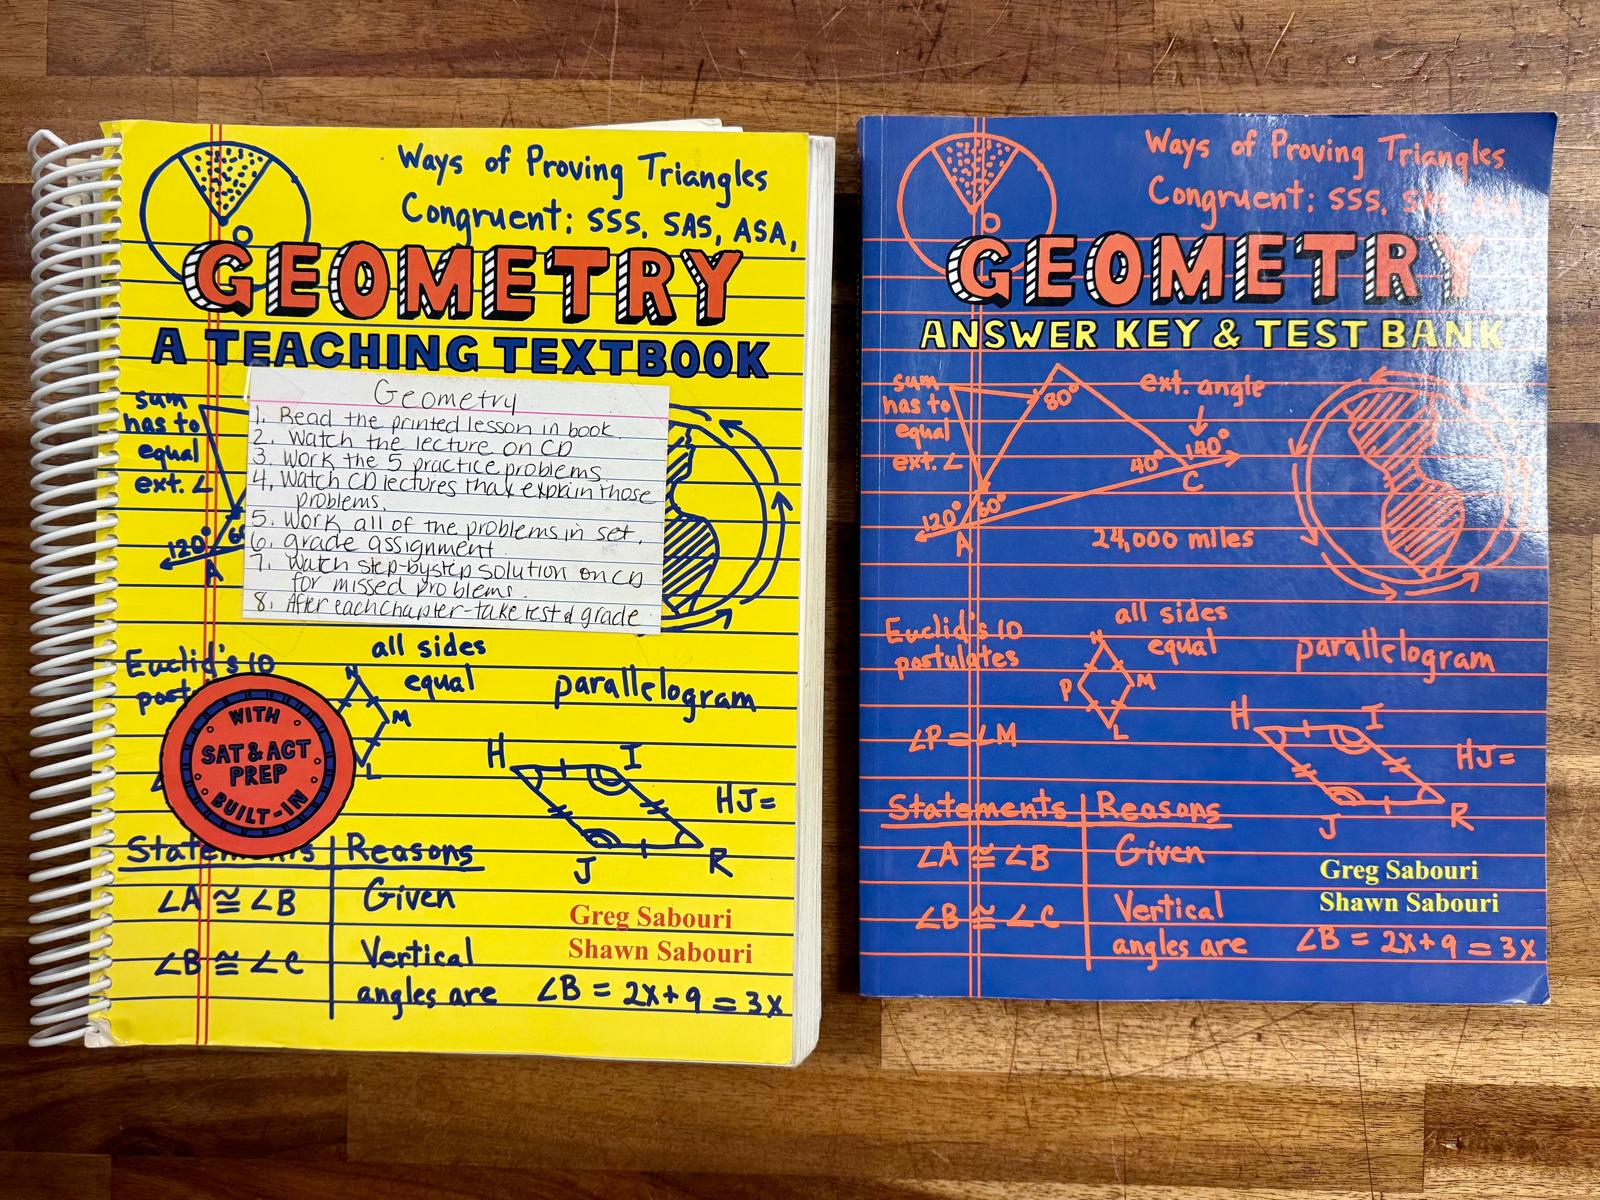 Ways of Proving Triangles
Congruent: SSS, SAS, ASA,
GEOMETRY
A TEACHING TEXTBOOK
Geometry
1. Read the printed lesson in book.
2. Watch the lecture on CD
3. Work the 5 practice problems.
4. Watch CD lectures that explain those
problems.
5. Work all of the problems in set.
6. grade assignment
7. Watch step-by step solution on CD
for missed problems.
8. After each chapter - take test & grade
sum
has to
equal
ext. ∠
120°
60
A
Euclid's 10
post
all sides
equal
N
M
L
parallelogram
WITH
SAT & ACT
PREP
BUILT-IN
H
I
J
R
HJ=
Statements
Reasons
∠A ≅ ∠B
Given
∠B ≅ ∠C
Vertical
angles are
Greg Sabouri
Shawn Sabouri
∠B = 2x+9 = 3x
Ways of Proving Triangles
Congruent: SSS, SAS, ASA,
GEOMETRY
ANSWER KEY & TEST BANK
sum
has to
equal
ext. ∠
80°
ext. angle
40°
140°
C
120°
60°
A
24,000 miles
Euclid's 10
postulates
all sides
equal
N
P
M
L
parallelogram
∠P = ∠M
H
I
J
R
HJ=
Statements
Reasons
∠A ≅ ∠B
Given
∠B ≅ ∠C
Vertical
angles are
Greg Sabouri
Shawn Sabouri
∠B = 2x+9 = 3x